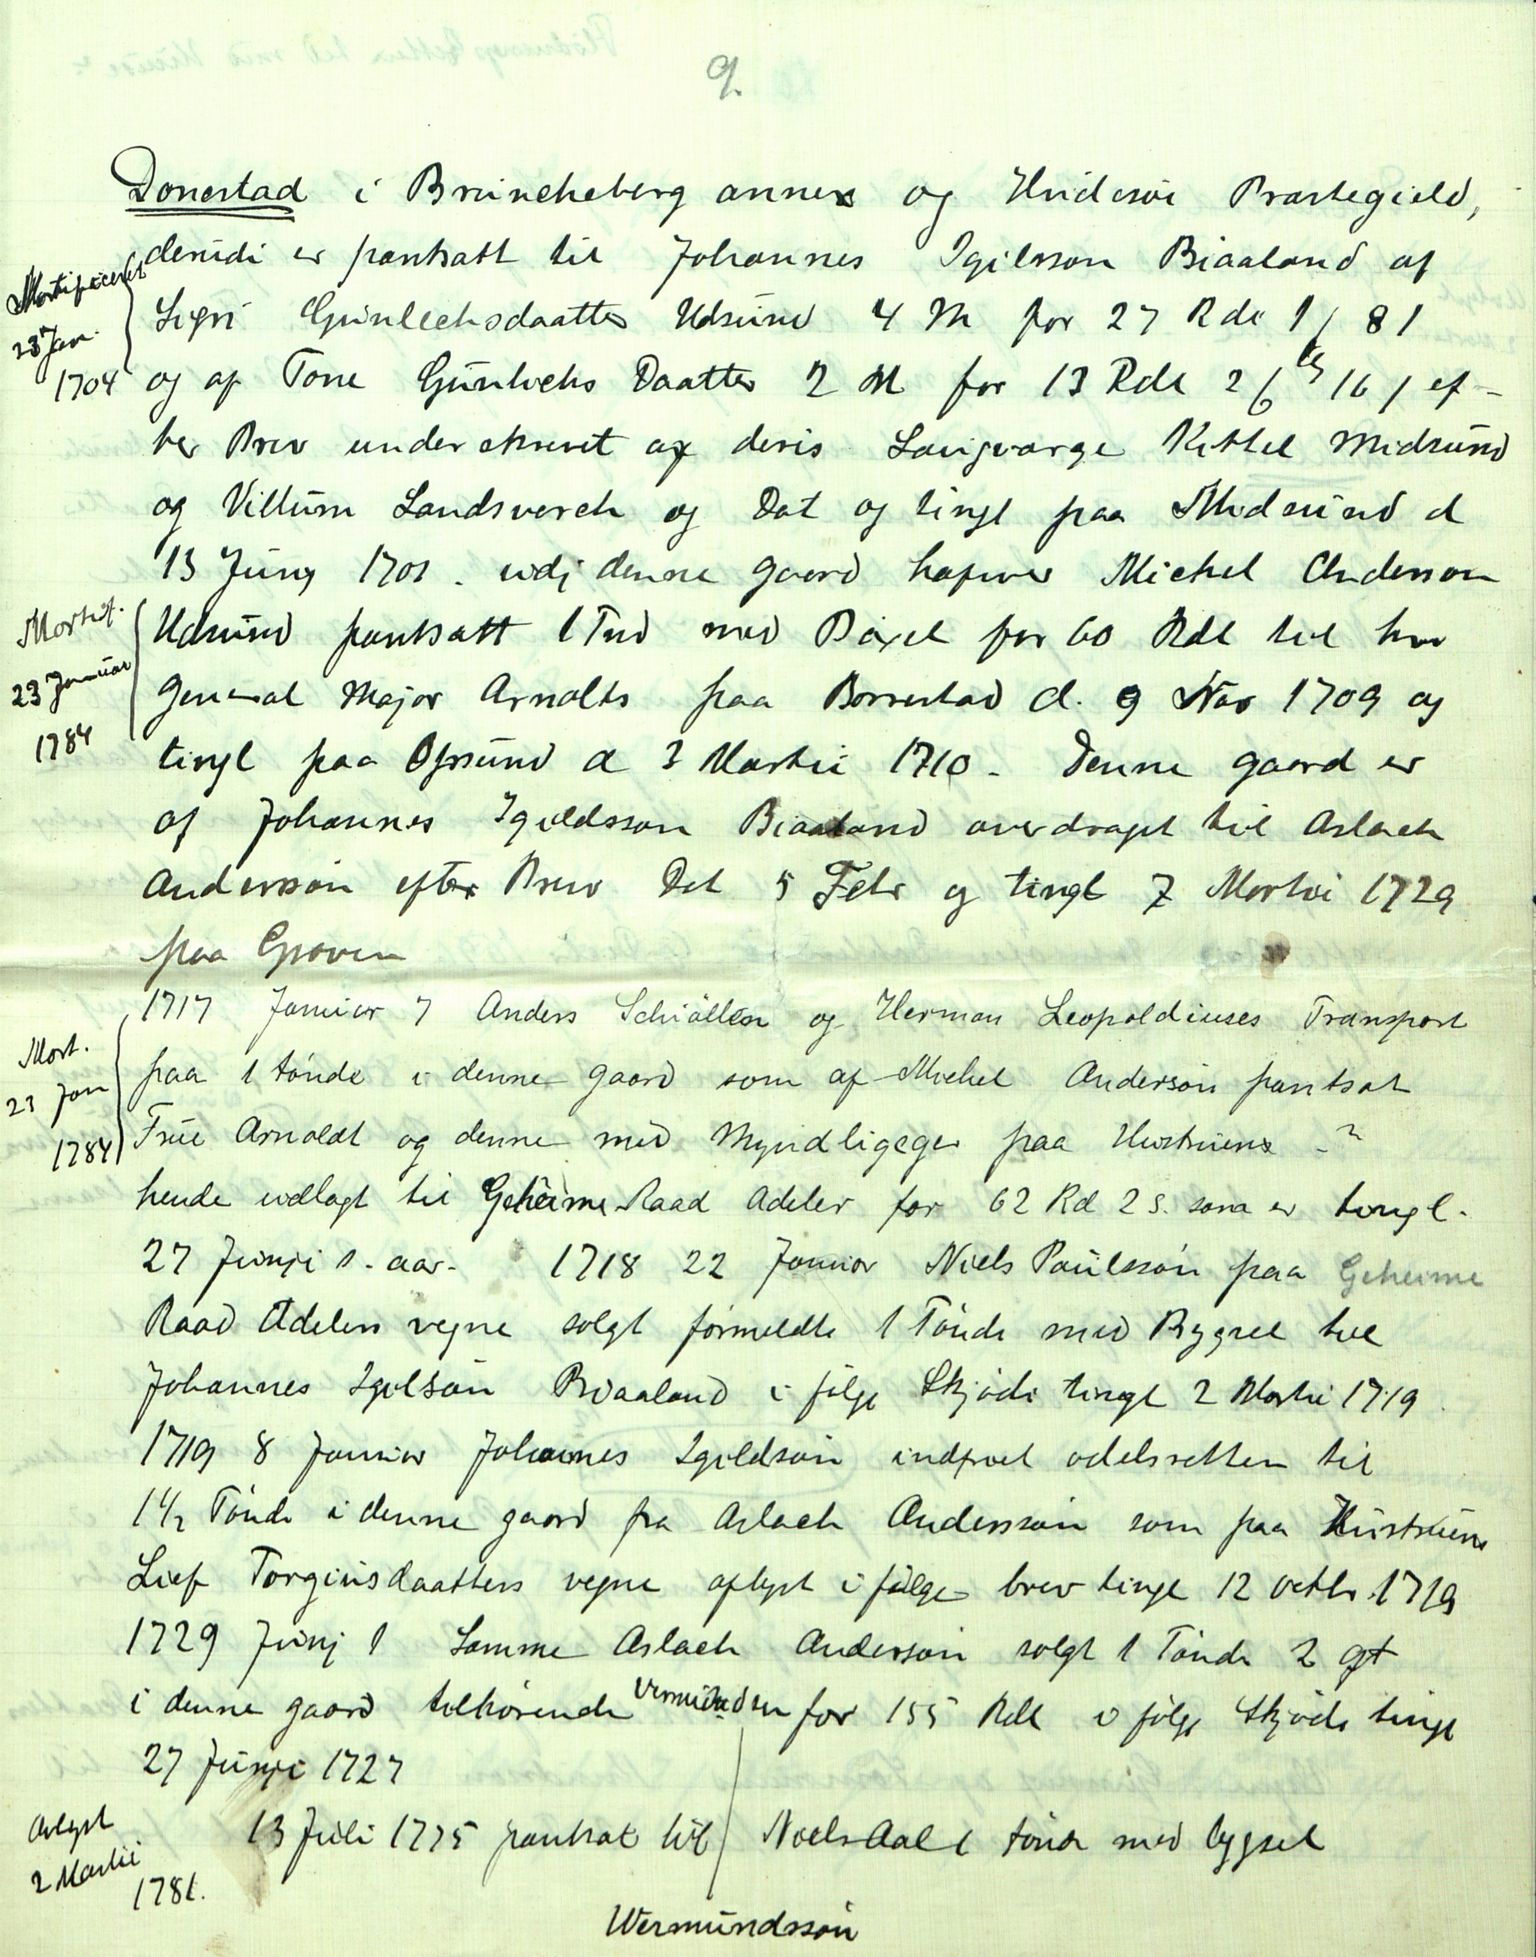 9.
Donestad i Bruncheberg annex og Hvidesøe Præstegield,
derudi er pantsatt til Johannes Igilsson Biaaland af
Mortificeret
23 Jan.
1704
Sigri Gunlechsdaatter Udsund 4 M for 27 Rdl 1 / 8 /
og af Tone Gunlechs Daatter 2 M for 13 Rdl 2 / 16 / ef-
ter Brev underskrevet af deris Laugvarge Kittel Midsund
og Villum Landsverch og Dat og tingl paa Midsund d
13 Juny 1701. udj denne gaard hafver Michel Anderson
Mortif.
23 Januar
1784
Udsund pantsatt 1 Tnd med Bøxel for 60 Rdl til hr
General Major Arnolts paa Borrestad d. 9 Nov 1709 og
tingl paa Ofsund d 3 Martii 1710. Denne gaard er
af Johannes Igeldsson Biaaland overdraget til Aslach
Anderssøn efter Brev Dat 5 Febr og tingl 7 Martii 1729
paa Groven
1717 Januar 7 Anders Schiøllsøn og Herman Leopoldiuses Transport
Mort.
23 Jan
1784
paa 1 tønde i denne gaard som af Michel Andersøn pantsat
Frue Arnoldt og denne med Myndligeger paa Hustruens - ?
hende udlagt til Geheime Raad Adeler for 62 Rd 2 s. som er tingl.
27 Junji s. aar. 1718 22 Januar Niels Paulssøn paa Geheime
Raad Adelers vegne solgt formeldte 1 Tønde med Bygsel til
Johannes Igelsøn Biaaland i følge Skjøde tingl 2 Martii 1719.
1719 8 Januar Johannes Igeldsøn indfriet odelsretten til
1 1/2 Tønde i denne gaard fra Aslach Anderssøn som paa Hustruens
Lief Torgiusdaatters vegne aflyst i følge brev tingl 12 octbr. 1719
1729 Junj 1 Samme Aslach Andersøn solgt 1 Tønde 2 qt
i denne gaard tilhørende Vermundsen for 155 Rdl i følge Skjøde tingl
27 Junji 1727
Aflyst
2 Martii
1781.
13 Juli 1775 pantsat til Niels Aal 1 tønde med bygsel
Wermundssøn